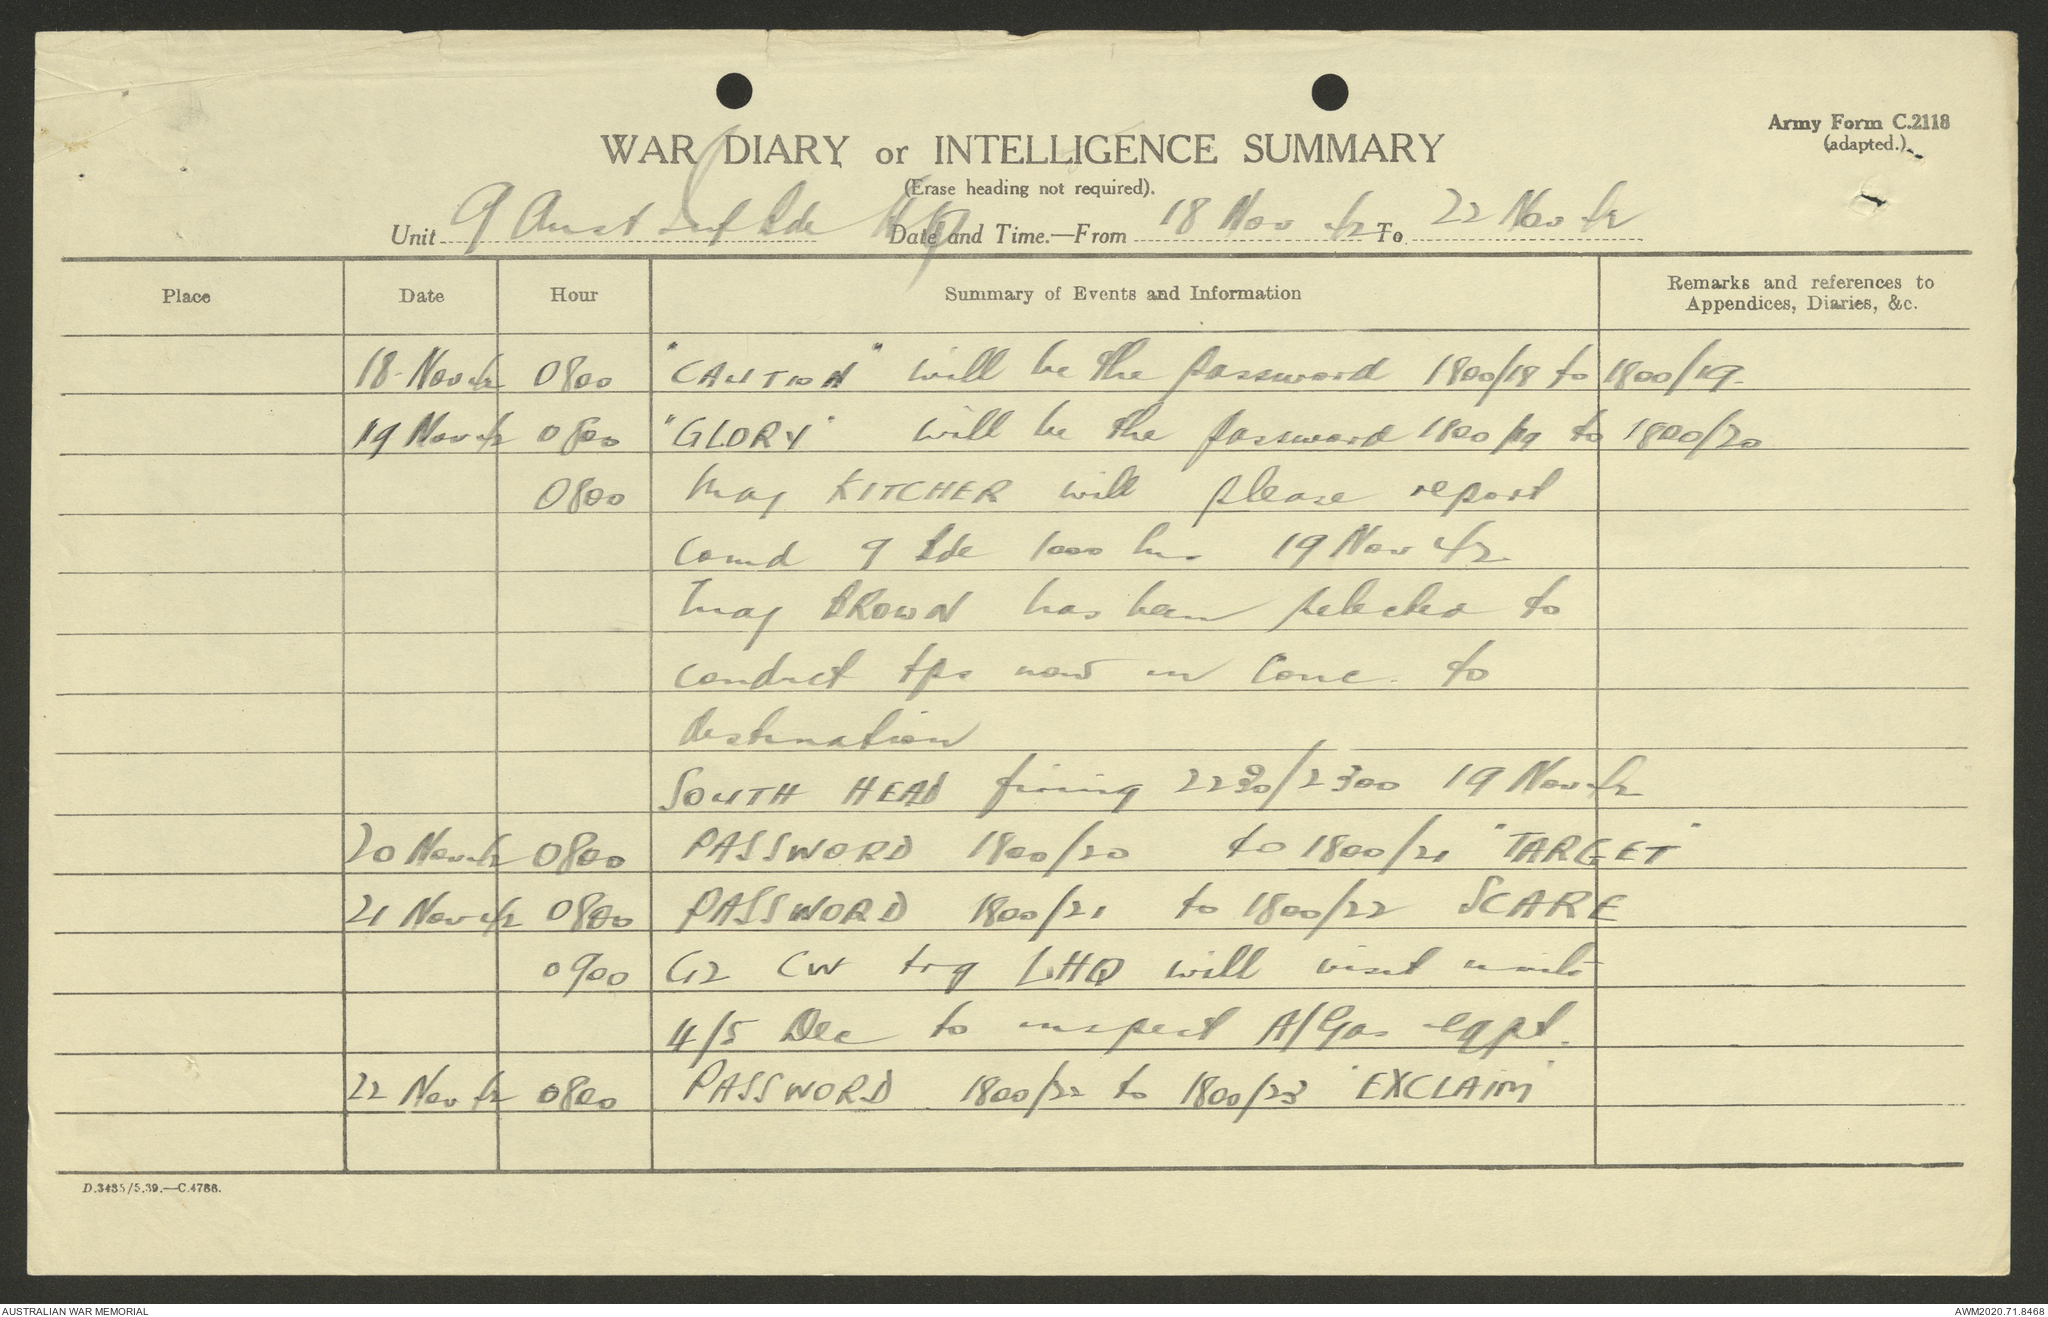 Army Form C.2118
(adapted.)
WAR DIARY or INTELLIGENCE SUMMARY
(Erase heading not required).
Unit 9 Aust Inf Bde HQ Date and Time.—From 18 Nov 42 To 22 Nov 42
Place Date Hour Summary of Events and Information Remarks and references to
Appendices, Diaries, &c.
18 Nov 42 0800 "CAUTION" will be the password 1800/18 to 1800/19.
19 Nov 42 0800 "GLORY" will be the password 1800/19 to 1800/20
0800 Maj KITCHER will please report
comd 9 Bde 1000 hrs 19 Nov 42
Maj BROWN has been selected to
conduct tps now in Conc. to
destination
SOUTH HEAD firing 2230/2300 19 Nov 42
20 Nov 42 0800 PASSWORD 1800/20 to 1800/21 "TARGET"
21 Nov 42 0800 PASSWORD 1800/21 to 1800/22 SCARE
0900 G2 CW trg LHQ will visit units
4/5 Dec to inspect A/Gas eqpt.
22 Nov 42 0800 PASSWORD 1800/22 to 1800/23 "EXCLAIM"
D.3485/5.39.—C.4786.
AUSTRALIAN WAR MEMORIAL AWM2020.71.8468